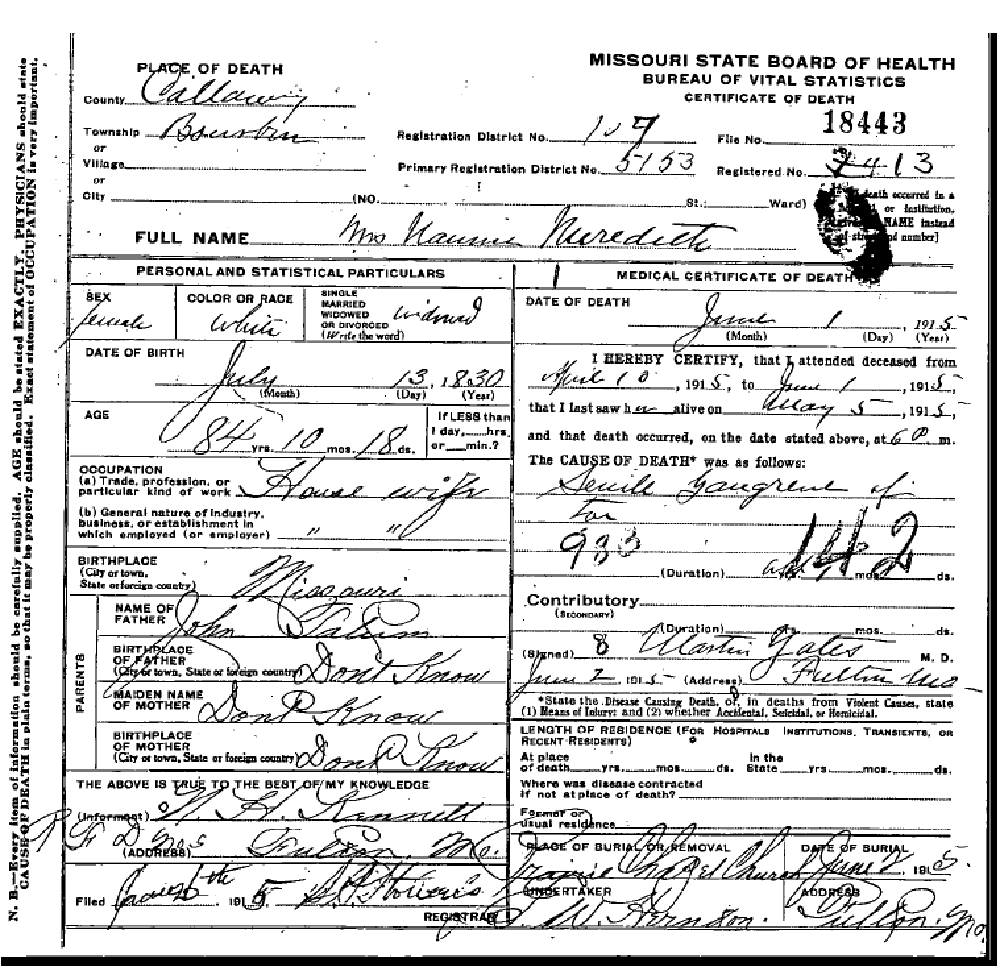 MISSOURI STATE BOARD OF HEALTH
BUREAU OF VITAL STATISTICS
CERTIFICATE OF DEATH
PLACE OF DEATH
County Callaway
Township Bourbon
or
Village
or
City (NO. St.; Ward)
Registration District No. 107
File No. 18443
Primary Registration District No. 5153
Registered No. 13
death occurred in a
or institution,
NAME instead
of and number]
FULL NAME Mrs Meredith
PERSONAL AND STATISTICAL PARTICULARS
SEX
female
COLOR OR RACE
White
SINGLE
MARRIED
WIDOWED
OR DIVORCED
(Write the word)
widowed
DATE OF BIRTH
July 13, 1830
(Month) (Day) (Year)
AGE
84 yrs. 10 mos. 18 ds.
If LESS than
1 day, hrs.
or min.?
OCCUPATION
(a) Trade, profession, or
particular kind of work House wife
(b) General nature of industry,
business, or establishment in
which employed (or employer) " "
BIRTHPLACE
(City or town,
State or foreign country)
Missouri
PARENTS
NAME OF
FATHER
John
BIRTHPLACE
OF FATHER
(City or town, State or foreign country) Dont Know
MAIDEN NAME
OF MOTHER Dont Know
BIRTHPLACE
OF MOTHER
(City or town, State or foreign country) Dont Know
THE ABOVE IS TRUE TO THE BEST OF MY KNOWLEDGE
(Informant) H.
R F D No
(ADDRESS) Fulton, Mo.
Filed 191 5
REGISTRAR
MEDICAL CERTIFICATE OF DEATH
DATE OF DEATH
June 1, 1915
(Month) (Day) (Year)
I HEREBY CERTIFY, that I attended deceased from
April 10, 1915, to June 1, 1915,
that I last saw her alive on May 5, 1915,
and that death occurred, on the date stated above, at 6 P m.
The CAUSE OF DEATH* was as follows:
Senile Gangrene of
983 142
(Duration) mos. ds.
Contributory
(SECONDARY)
(Duration) yrs. mos. ds.
(Signed) Martin Yates M. D.
June 2 1915 (Address) Fulton Mo
*State the Disease Causing Death, or, in deaths from Violent Causes, state
(1) Means of Injury; and (2) whether Accidental, Suicidal, or Homicidal.
LENGTH OF RESIDENCE (FOR HOSPITALS INSTITUTIONS, TRANSIENTS, OR
RECENT RESIDENTS)
At place
of death yrs. mos. ds.
In the
State yrs. mos. ds.
Where was disease contracted
if not at place of death?
Former or
usual residence
PLACE OF BURIAL OR REMOVAL
Prairie Chapel Church
DATE OF BURIAL
June 2 1915.
UNDERTAKER
W. Herndon.
ADDRESS
Fulton, Mo.
N. B.—Every item of information should be carefully supplied. AGE should be stated EXACTLY. PHYSICIANS should state
CAUSE OF DEATH in plain terms, so that it may be properly classified. Exact statement of OCCUPATION is very important.